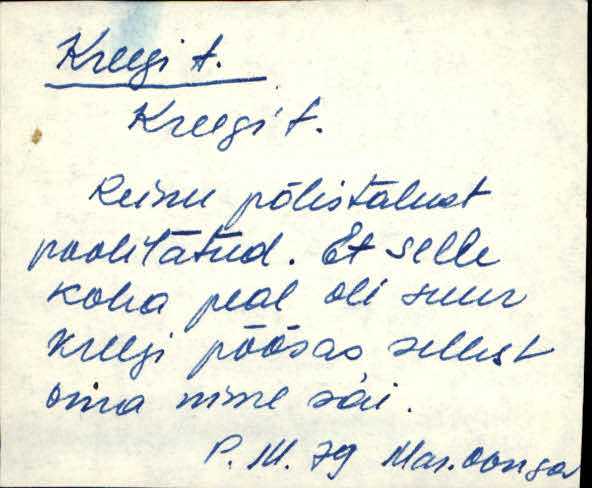 Kreegi t.
Kreegi t.
Reinu põlistalust
poolitatud. Et selle
koha peal oli suur
kreegi põõsas sellest
oma nime sai.
P. M. 79